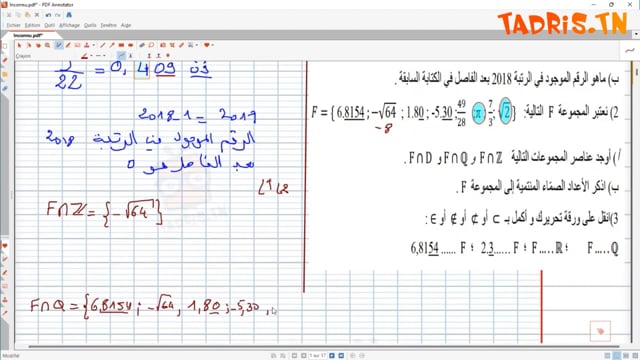 Inconnu.pdf* - PDF Annotator
TADRIS.TN
Inconnu.pdf*
Crayon
22 = 0, 409
2018-1 = 2017
الرقم الموجود في الرتبة 2018
بعد الفاصل هو 0
F∩ℤ = {-√64}
F∩Q = {6,8154 ; -√64 , 1,80 ; -5,30 ,
ب) ماهو الرقم الموجود في الرتبة 2018 بعد الفاصل في الكتابة السابقة .
2) نعتبر المجموعة F التالية: F = { 6,8154 ; -√64 ; 1,80 ; -5,30 ; 49/28 ; π ; 7/3 ; √2 }
-8
أ) أوجد عناصر المجموعات التالية F∩ℤ و F∩Q و F∩D .
ب) اذكر الأعداد الصمّاء المنتمية إلى المجموعة F .
3) انقل على ورقة تحريرك و أكمل بـ ⊃ أو ⊅ أو ∌ أو ∋ :
6,8154 ...... F ؛ 2,3 ...... F ؛ F ..... ℝ ؛ F .... Q
1 sur 17